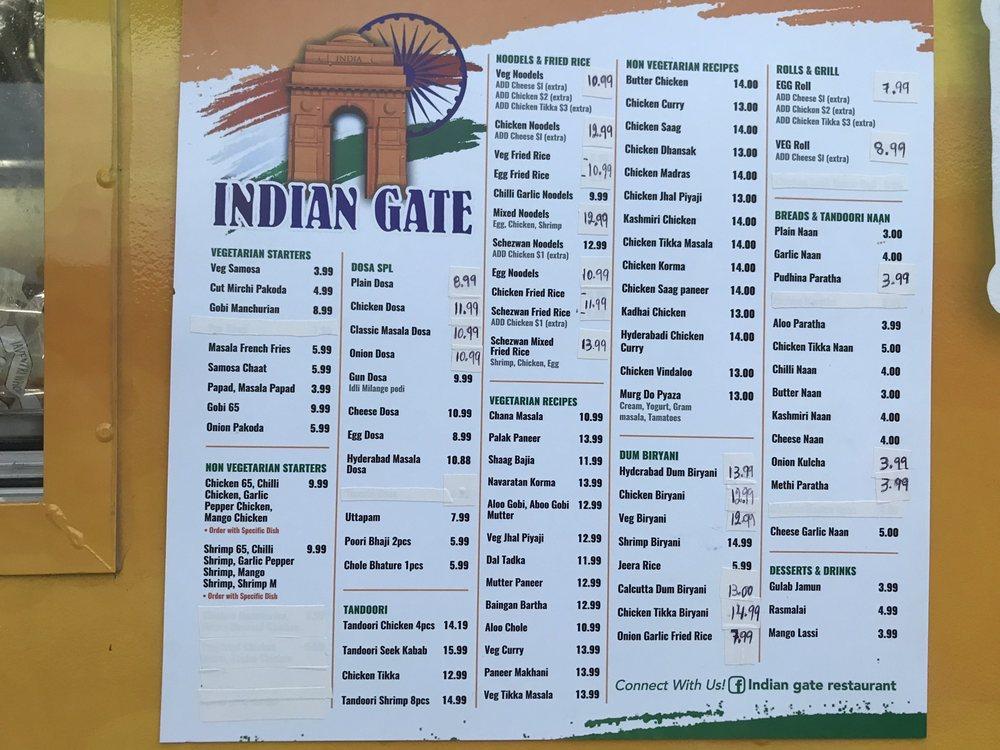 INDIA
INDIAN GATE
VEGETARIAN STARTERS
Veg Samosa 3.99
Cut Mirchi Pakoda 4.99
Gobi Manchurian 8.99
Masala French Fries 5.99
Samosa Chaat 5.99
Papad, Masala Papad 3.99
Gobi 65 9.99
Onion Pakoda 5.99
NON VEGETARIAN STARTERS
Chicken 65, Chilli 9.99
Chicken, Garlic
Pepper Chicken,
Mango Chicken
• Order with Specific Dish
Shrimp 65, Chilli 9.99
Shrimp, Garlic Pepper
Shrimp, Mango
Shrimp, Shrimp M
• Order with Specific Dish
DOSA SPL
Plain Dosa 8.99
Chicken Dosa 11.99
Classic Masala Dosa 10.99
Onion Dosa 10.99
Gun Dosa 9.99
Idli Milange podi
Cheese Dosa 10.99
Egg Dosa 8.99
Hyderabad Masala 10.88
Dosa
Uttapam 7.99
Poori Bhaji 2pcs 5.99
Chole Bhature 1pcs 5.99
TANDOORI
Tandoori Chicken 4pcs 14.19
Tandoori Seek Kabab 15.99
Chicken Tikka 12.99
Tandoori Shrimp 8pcs 14.99
NOODELS & FRIED RICE
Veg Noodels 10.99
ADD Cheese $1 (extra)
ADD Chicken $2 (extra)
ADD Chicken Tikka $3 (extra)
Chicken Noodels 12.99
ADD Cheese $1 (extra)
Veg Fried Rice
Egg Fried Rice 10.99
Chilli Garlic Noodels 9.99
Mixed Noodels 12.99
Egg, Chicken, Shrimp
Schezwan Noodels 12.99
ADD Chicken $1 (extra)
Egg Noodels 10.99
Chicken Fried Rice
Schezwan Fried Rice 11.99
ADD Chicken $1 (extra)
Schezwan Mixed 13.99
Fried Rice
Shrimp, Chicken, Egg
VEGETARIAN RECIPES
Chana Masala 10.99
Palak Paneer 13.99
Shaag Bajia 11.99
Navaratan Korma 13.99
Aloo Gobi, Aboo Gobi 12.99
Mutter
Veg Jhal Piyaji 12.99
Dal Tadka 11.99
Mutter Paneer 12.99
Baingan Bartha 12.99
Aloo Chole 10.99
Veg Curry 13.99
Paneer Makhani 13.99
Veg Tikka Masala 13.99
NON VEGETARIAN RECIPES
Butter Chicken 14.00
Chicken Curry 13.00
Chicken Saag 14.00
Chicken Dhansak 13.00
Chicken Madras 14.00
Chicken Jhal Piyaji 13.00
Kashmiri Chicken 14.00
Chicken Tikka Masala 14.00
Chicken Korma 14.00
Chicken Saag paneer 14.00
Kadhai Chicken 13.00
Hyderabadi Chicken 14.00
Curry
Chicken Vindaloo 13.00
Murg Do Pyaza 13.00
Cream, Yogurt, Gram
masala, Tamatoes
DUM BIRYANI
Hydcrabad Dum Biryani 13.99
Chicken Biryani 12.99
Veg Biryani 12.99
Shrimp Biryani 14.99
Jeera Rice 5.99
Calcutta Dum Biryani 13.00
Chicken Tikka Biryani 14.99
Onion Garlic Fried Rice 7.99
ROLLS & GRILL
EGG Roll 7.99
ADD Cheese $1 (extra)
ADD Chickon $2 (extra)
ADD Chicken Tikka $3 (extra)
VEG Roll 8.99
ADD Cheese $1 (extra)
BREADS & TANDOORI NAAN
Plain Naan 3.00
Garlic Naan 4.00
Pudhina Paratha 3.99
Aloo Paratha 3.99
Chicken Tikka Naan 5.00
Chilli Naan 4.00
Butter Naan 3.00
Kashmiri Naan 4.00
Cheese Naan 4.00
Onion Kulcha 3.99
Methi Paratha 3.99
Cheese Garlic Naan 5.00
DESSERTS & DRINKS
Gulab Jamun 3.99
Rasmalai 4.99
Mango Lassi 3.99
Connect With Us! f Indian gate restaurant